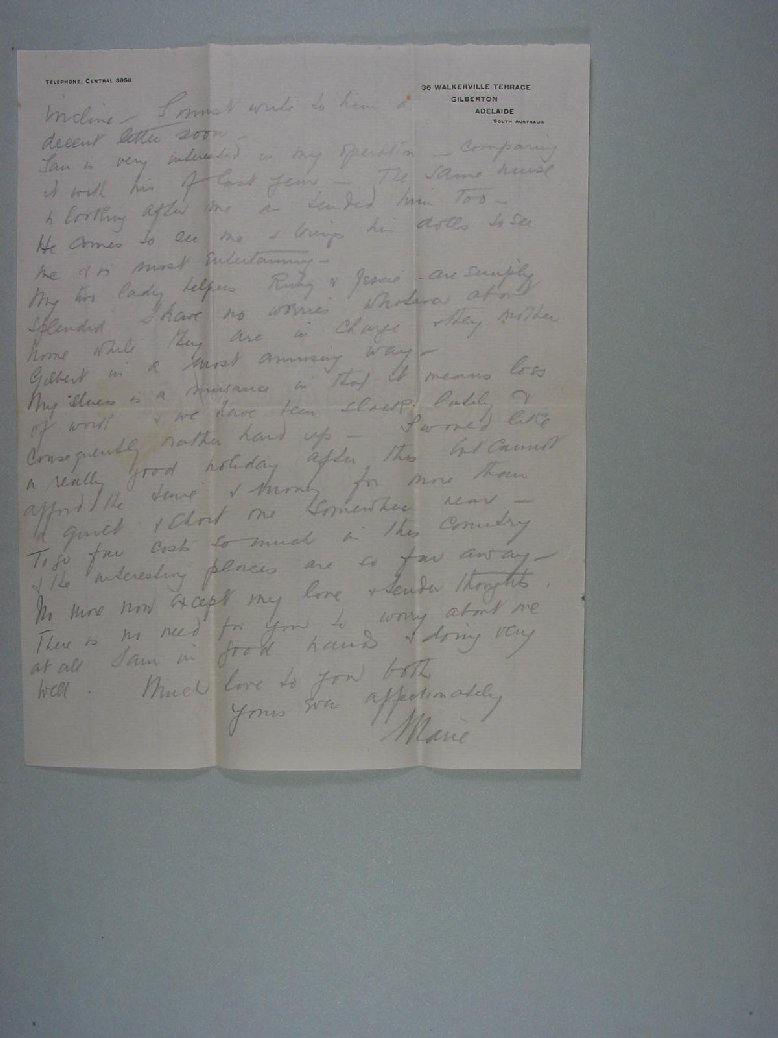 TELEPHONE, CENTRAL 5868
96 WALKERVILLE TERRACE
GILBERTON
ADELAIDE
SOUTH AUSTRALIA
incline – I must write to him a
decent letter soon –
Ian is very interested in my operation – comparing
it with his of last year – The same nurse
is looking after me as tended him too –
He comes to see me & brings his dolls to see
me & is most entertaining –
My two lady helpers Ruby & Jessie are simply
splendid I have no worries whatever about
home while they are in charge & they mother
Gilbert in a most amusing way –
My illness is a nuisance in that it means loss
of work & we have been slack lately &
consequently rather hard up – I would like
a really good holiday after this but cannot
afford the time & money for more than
a quiet & short one somewhere near –
To go far costs so much in this country
& the interesting places are so far away –
No more now except my love & tender thoughts.
There is no need for you to worry about me
at all I am in good hands & doing very
well. Much love to you both
Yours ever affectionately
Marie